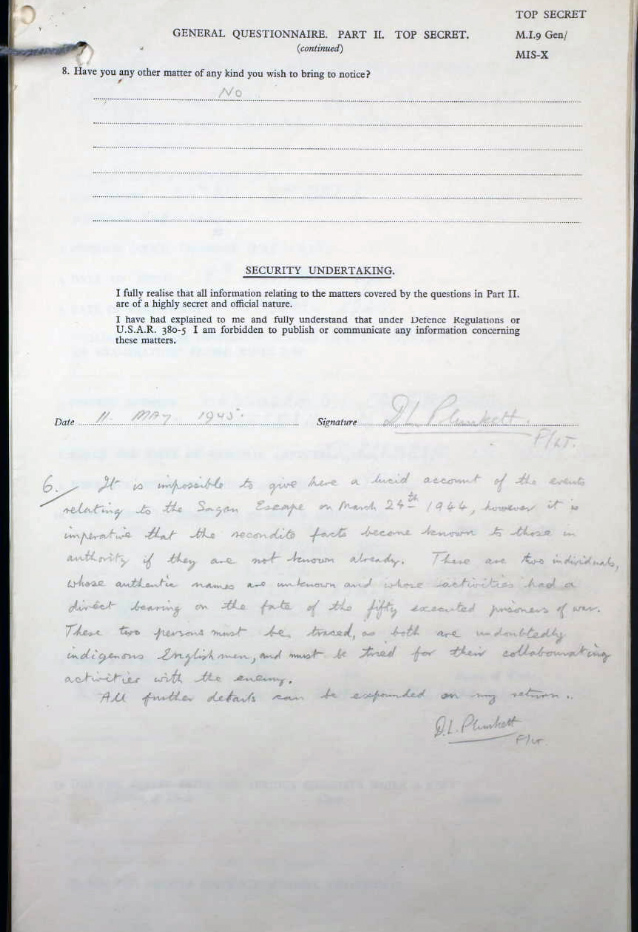 TOP SECRET
GENERAL QUESTIONNAIRE. PART II. TOP SECRET.
M.I.9 Gen/
(continued)
MIS-X
8. Have you any other matter of any kind you wish to bring to notice?
No
SECURITY UNDERTAKING.
I fully realise that all information relating to the matters covered by the questions in Part II.
are of a highly secret and official nature.
I have had explained to me and fully understand that under Defence Regulations or
U.S.A.R. 380-5 I am forbidden to publish or communicate any information concerning
these matters.
Date 11. MAY 1945. Signature D.L. Plunkett.
F/LT.
6. It is impossible to give here a lucid account of the events
relating to the Sagan Escape on March 24th 1944, however it is
imperative that the recondite facts become known to those in
authority if they are not known already. There are two individuals,
whose authentic names are unknown and whose activities had a
direct bearing on the fate of the fifty executed prisoners of war.
These two persons must be traced, as both are undoubtedly
indigenous Englishmen, and must be tried for their collaborating
activities with the enemy.
All further details can be expounded on my return.
D.L. Plunkett
F/LT.